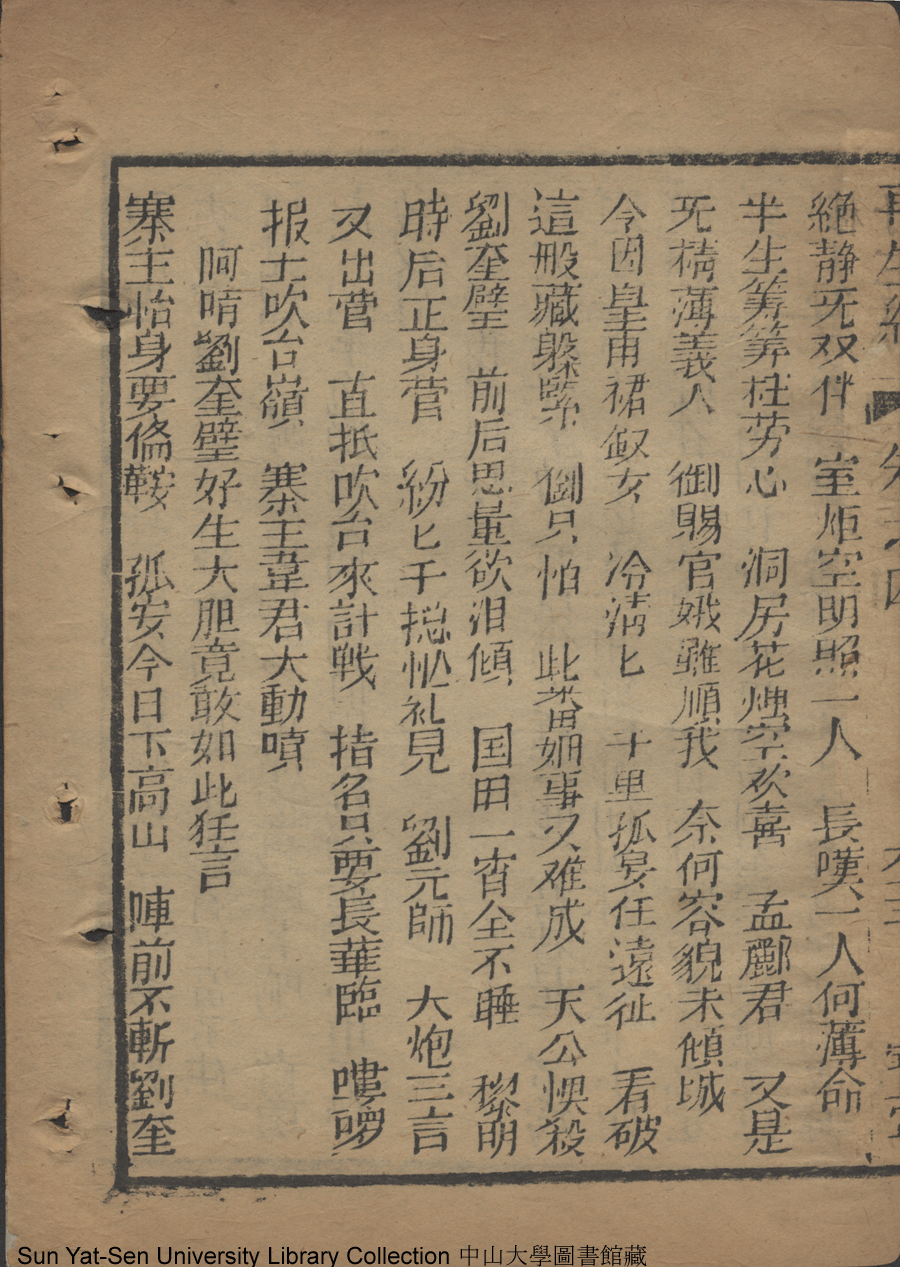 再生緣 卷之四
絕静旡双伴 室炬空明照一人 長嘆一人何薄命
半生筭筭枉劳心 洞房花烛空欢喜 孟酈君 又是
旡情薄義人 御賜官娥雖順我 奈何容貌未傾城
今因皇甫裙釵女 冷清匕 千里孤安任遠征 看破
這般藏躲緊 倒只怕 此番姻事又难成 天公悞殺
劉奎璧 前后思量欲泪傾 囯田一宵全不睡 黎明
時后正身菅 紛匕千揔忙礼見 劉元師 大炮三言
又出菅 直抵吹台來計战 指名只要長華臨 嘍啰
报士吹台嶺 寨主韋君大動嗔
阿唷劉奎璧好生大胆竟敢如此狂言
寨主怡身要俻鞍 孤安今日下高山 陣前不斬劉奎
Sun Yat-Sen University Library Collection 中山大學圖書館藏